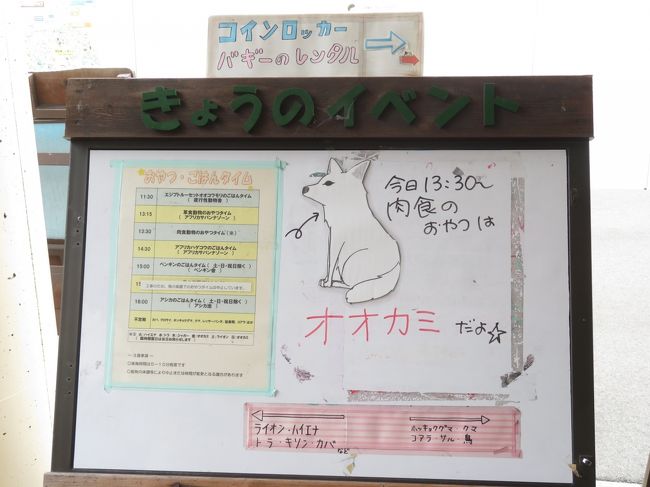 コインロッカー
バギーのレンタル
きょうのイベント
おやつ・ごはんタイム
11:30 エジプトルーセットオオコウモリのごはんタイム
( 夜行性動物舎 )
13:15 草食動物のおやつタイム
( アフリカサバンナゾーン )
13:30 肉食動物のおやつタイム
14:30 アフリカハゲコウのごはんタイム
( アフリカサバンナゾーン )
15:00 ペンギンのごはんタイム ( 土・日・祝日除く )
( ペンギン舎 )
アシカのごはんタイム ( 土・日・祝日除く )
( アシカ池 )
不定期
今日13:30〜
肉食の
おやつは
オオカミ だよ☆
ライオン・ハイエナ
トラ・キリン・カバ など
ホッキョクグマ・クマ
コアラ・サル・鳥